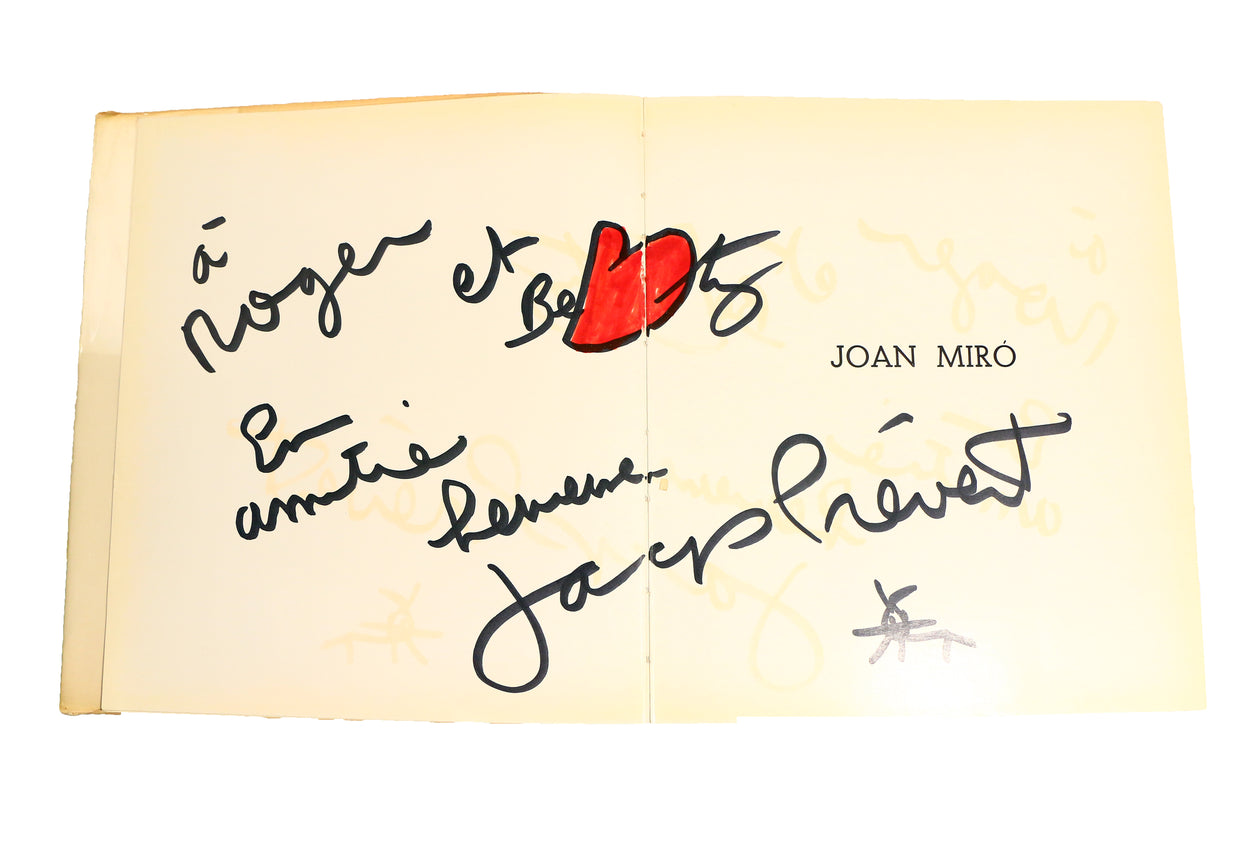 à
Roger et Betty
JOAN MIRÓ
En
amitié
heureuse
Jacques Prévert